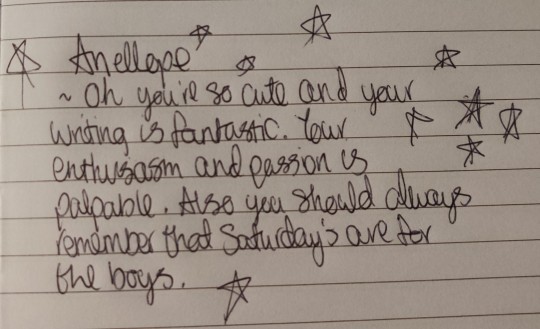 Anellope
~ Oh you're so cute and your
writing is fantastic. Your
enthusiasm and passion is
palpable. Also you should always
remember that Saturday's are for
the boys.